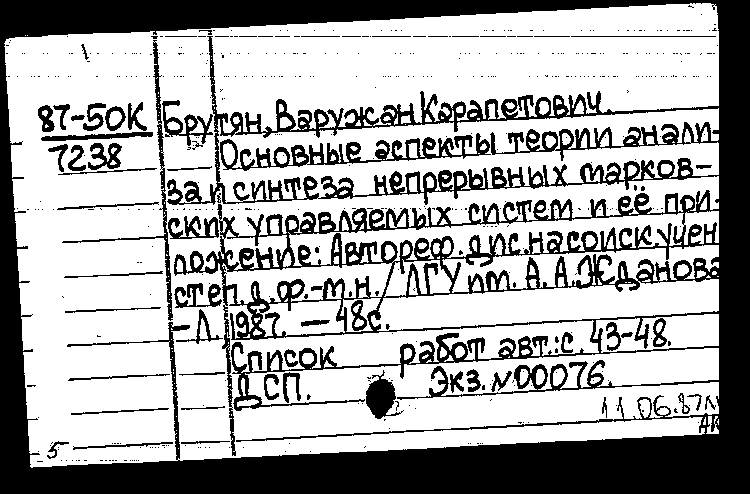 87-50К Брутян, Варужан Карапетович.
7238 Основные аспекты теории анали-
за и синтеза непрерывных марков-
ских управляемых систем и её при-
ложение: Автореф. дис. на соиск. учен
степ. д. ф.-м.н. / ЛГУ им. А. А. Жданова
- Л. 1987. - 48с.
Список работ авт.: с. 43-48.
ДСП. Экз. №00076.
11.06.87
5